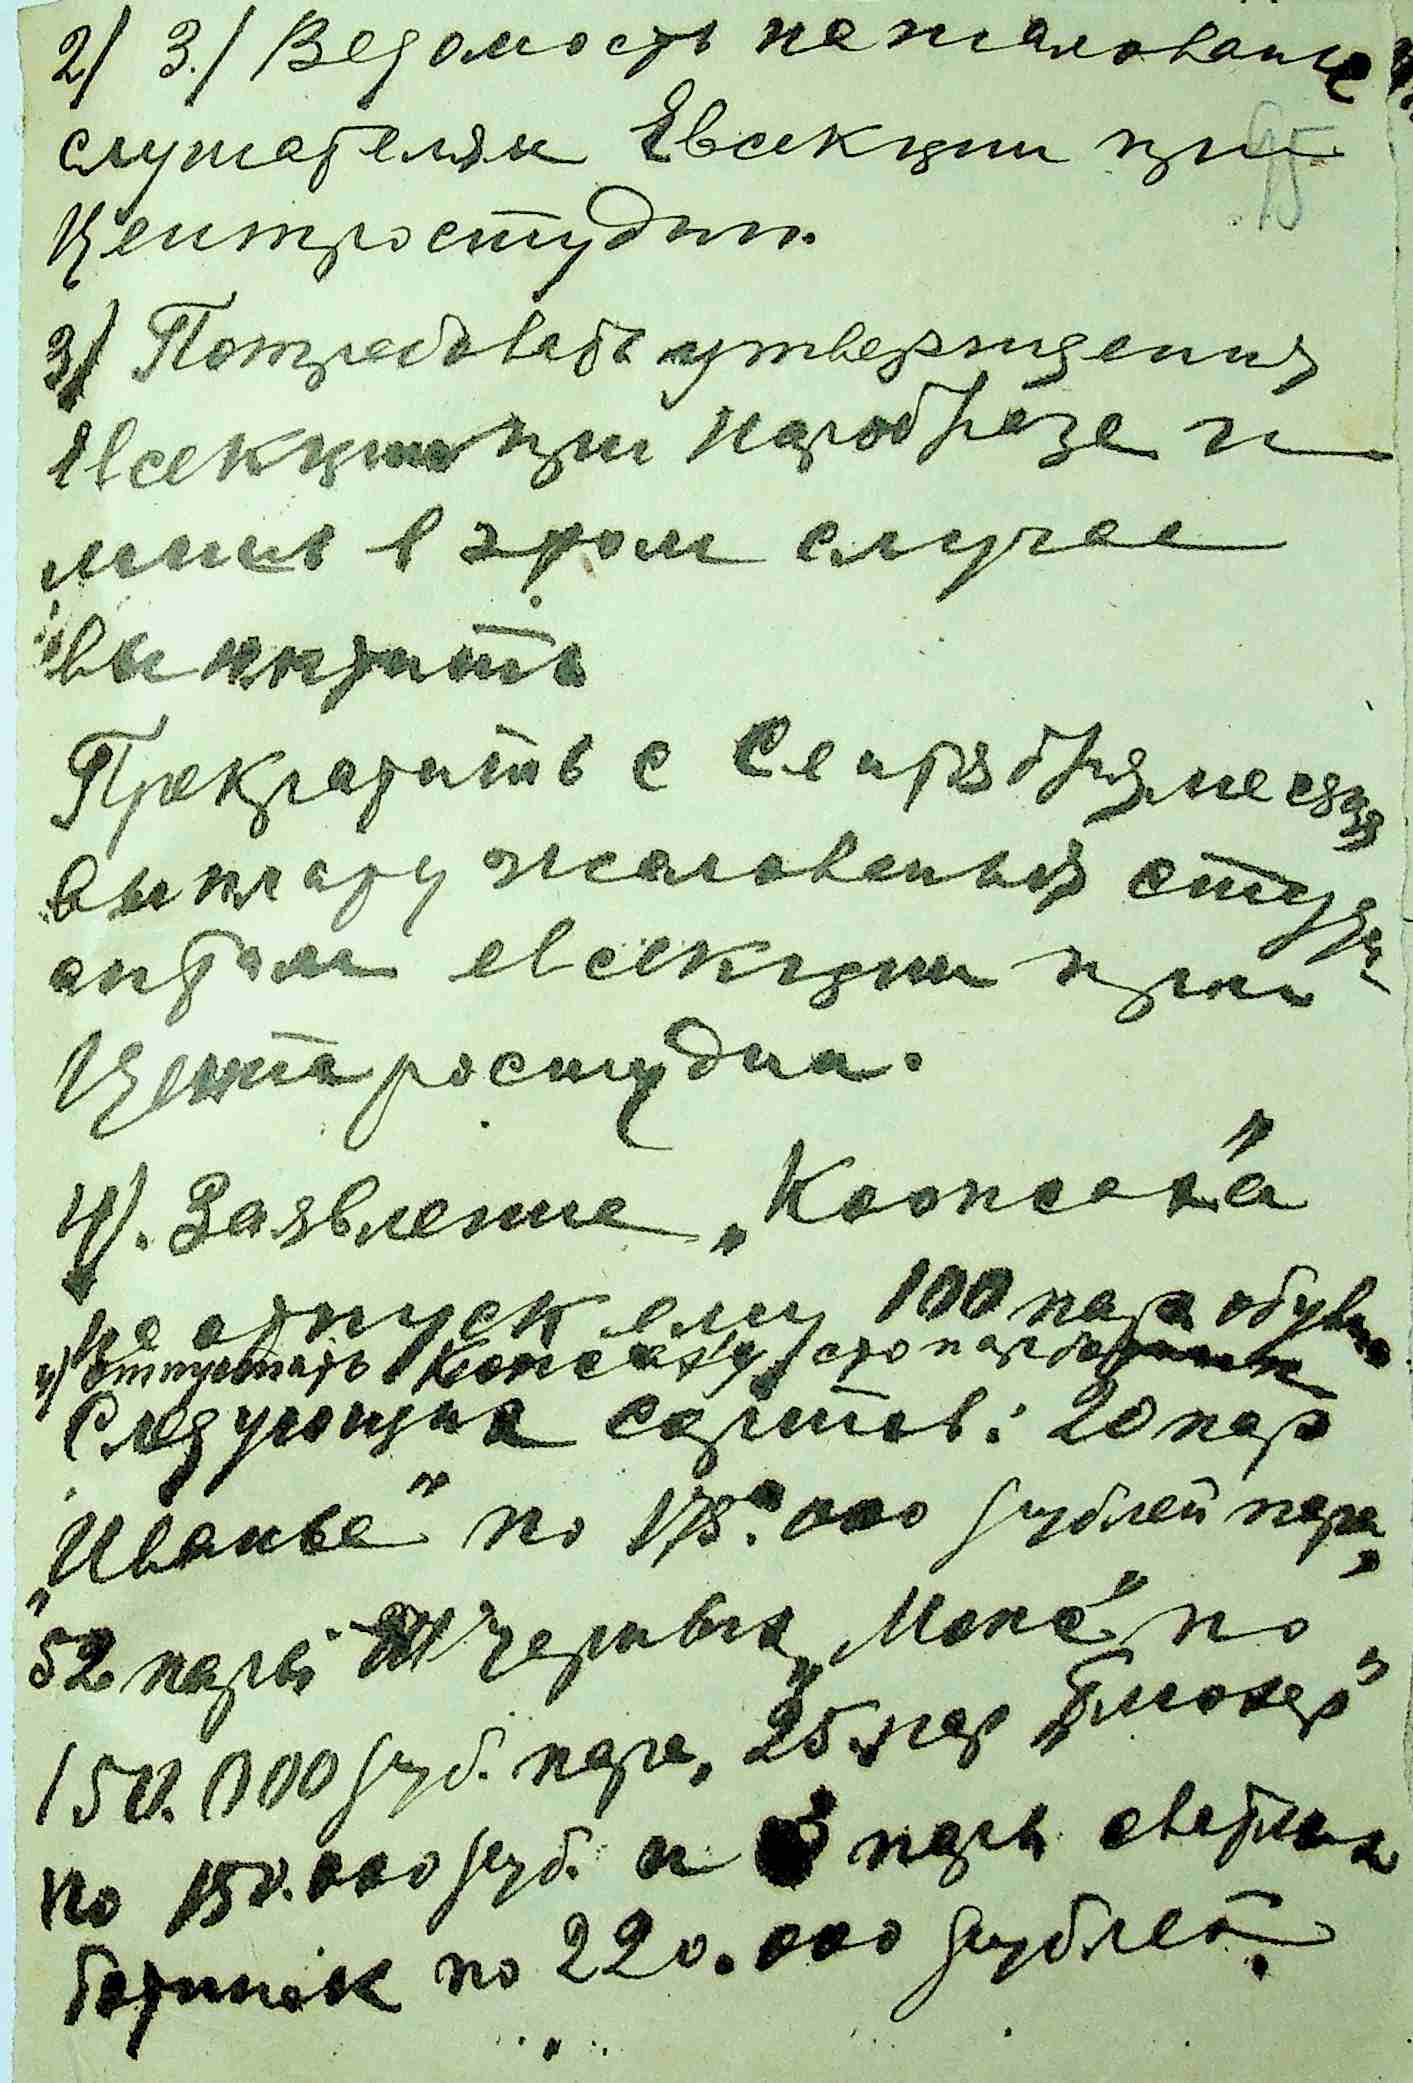 2/ 3./ Ведомость на жалование
слушателям Евсекции при
Центростудии.
3/ Потребовать утверждения
Евсекции при наробразе и
лишь в этом случае
выплатить
Прекратить с Сентября месяца
выплату жалованья студи
антам евсекции при
Центростудии.
4/. Заявление „Коопсаха"
на отпуск ему 100 пар обуви
4) Отпустить Коопсаху сто пар ботинок
следующих сортов: 20 пар
„Иванье" по 175.000 рублей пара,
52 пары черных „Мокс" по
150.000 руб. пара, 25 пар „Глюкер"
по 150.000 руб. и 3 пары светлых
ботинок по 220.000 рублей.